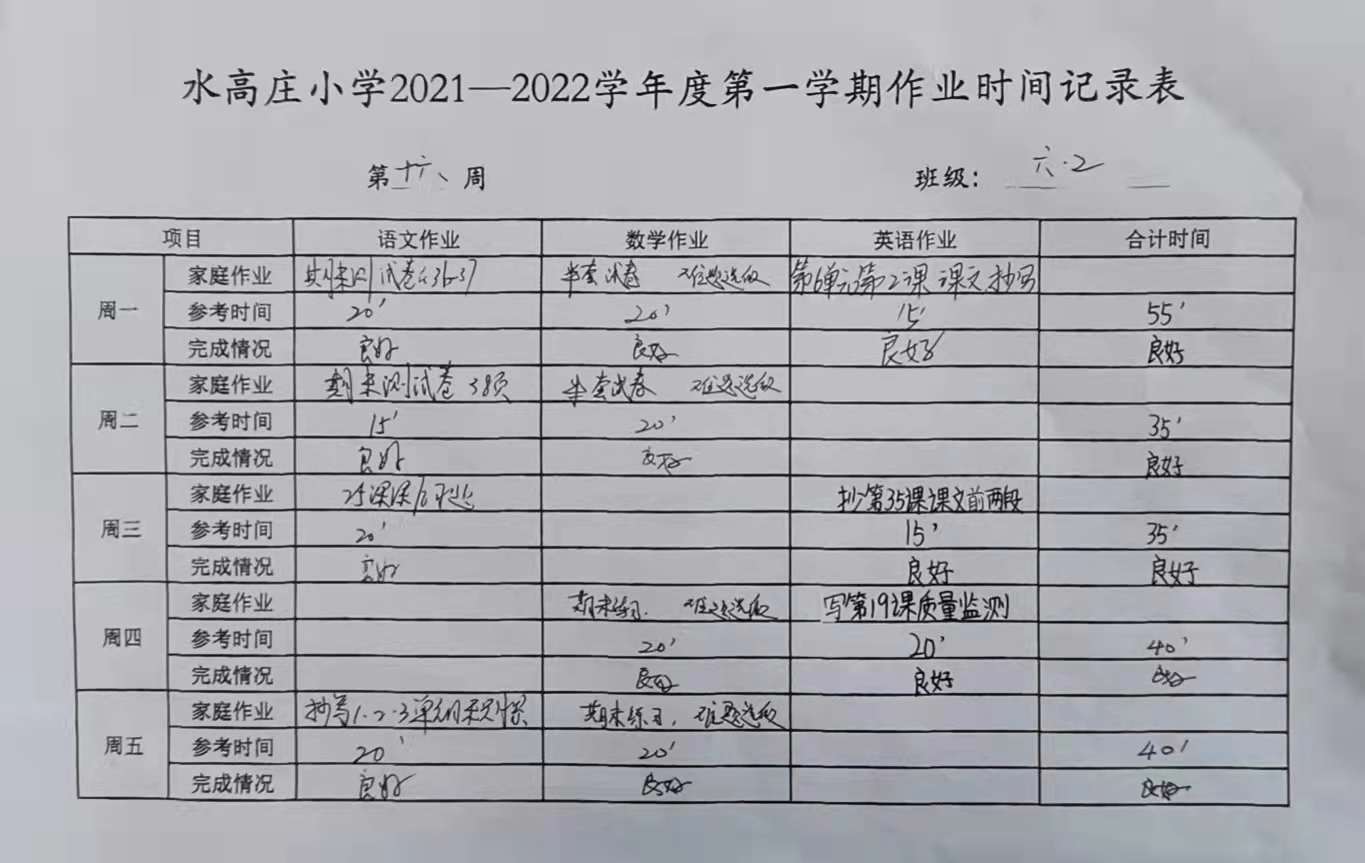 水高庄小学2021—2022学年度第一学期作业时间记录表
第十六、周 班级： 六·2
项目 语文作业 数学作业 英语作业 合计时间
周一
家庭作业 期末测试卷 36-37 半套试卷 难题选做 第6单元第2课 课文抄写
参考时间 20' 20' 15' 55'
完成情况 良好 良好 良好 良好
周二
家庭作业 期末测试卷 38页 半套试卷 难题选做
参考时间 15' 20' 35'
完成情况 良好 良好 良好
周三
家庭作业 25课课 抄第35课课文前两段
参考时间 20' 15' 35'
完成情况 良好 良好 良好
周四
家庭作业 期末练习. 难题选做 写第19课质量监测
参考时间 20' 20' 40'
完成情况 良好 良好 良好
周五
家庭作业 抄写1·2·3单元 期末练习, 难题选做
参考时间 20' 20' 40'
完成情况 良好 良好 良好